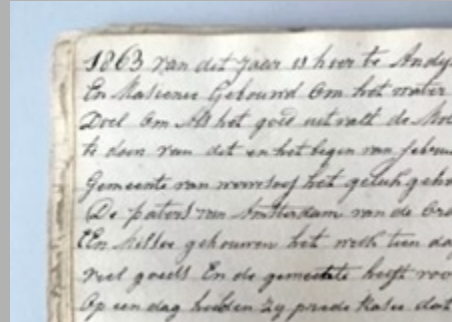 1863 van dit Jaar is hier te Andy
En Masiene Gebouwd Om het water
Doel Om Als het goed uit valt de Mol
te doen van dit en het begin van febru
Gemeente van het geluk geh
De paters van Amsterdam van de Ord
En Missie gehouwen het welk tien da
veel goeds En de gemeente heeft voo
Op een dag hebben zy preede Katie dat